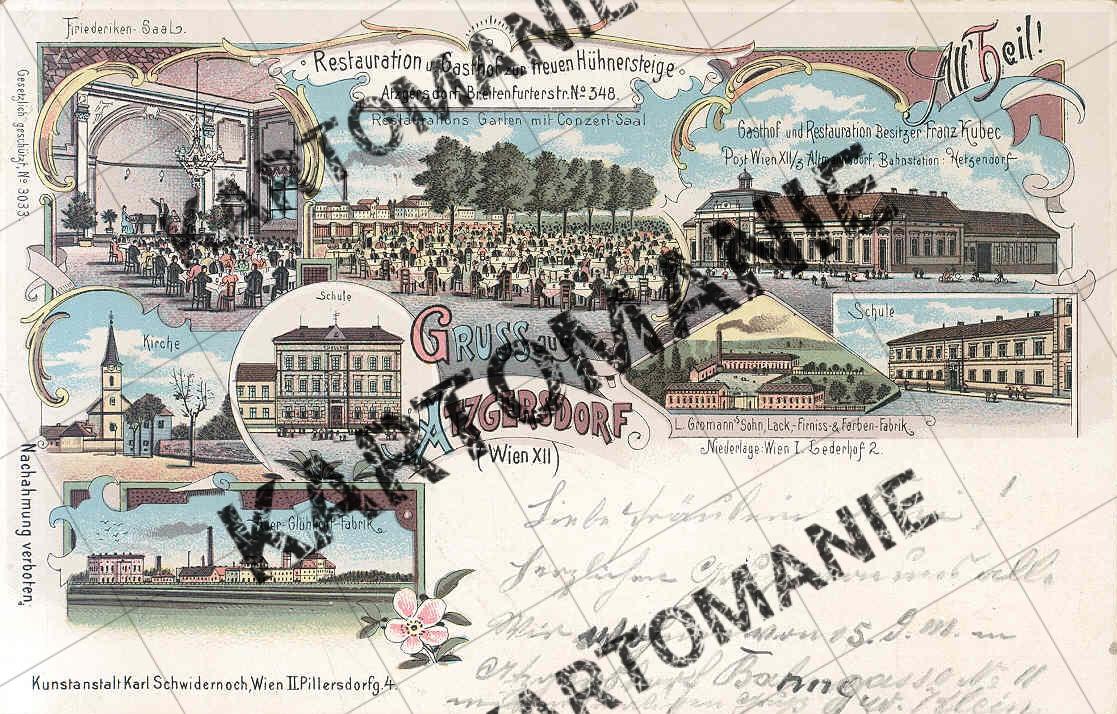 Friederiken-Saal.
All' Heil!
Restauration u. Gasthof zur treuen Hühnersteige
Atzgersdorf, Breitenfurterstr. No 348.
Restaurations Garten mit Conzert-Saal
Gasthof und Restauration Besitzer Franz Kubec
Post Wien XII/3 Altmannsdorf, Bahnstation: Hetzendorf
Gesetzlich geschützt No 3033
Kirche
Schule
Schule
GRUSS aus
ATZGERSDORF
(Wien XII)
L. Gromann's Sohn, Lack-, Firniss- & Farben-Fabrik
Niederlage: Wien I. Lederhof 2.
Glühlicht-Fabrik
Nachahmung verboten.
Kunstanstalt Karl Schwidernoch, Wien II. Pillersdorfg. 4.
Liebe Fräulein
herzlichen alle
Wir von 15. d. M. in
Bahngasse No 11
KARTOMANIE
KARTOMANIE
KARTOMANIE